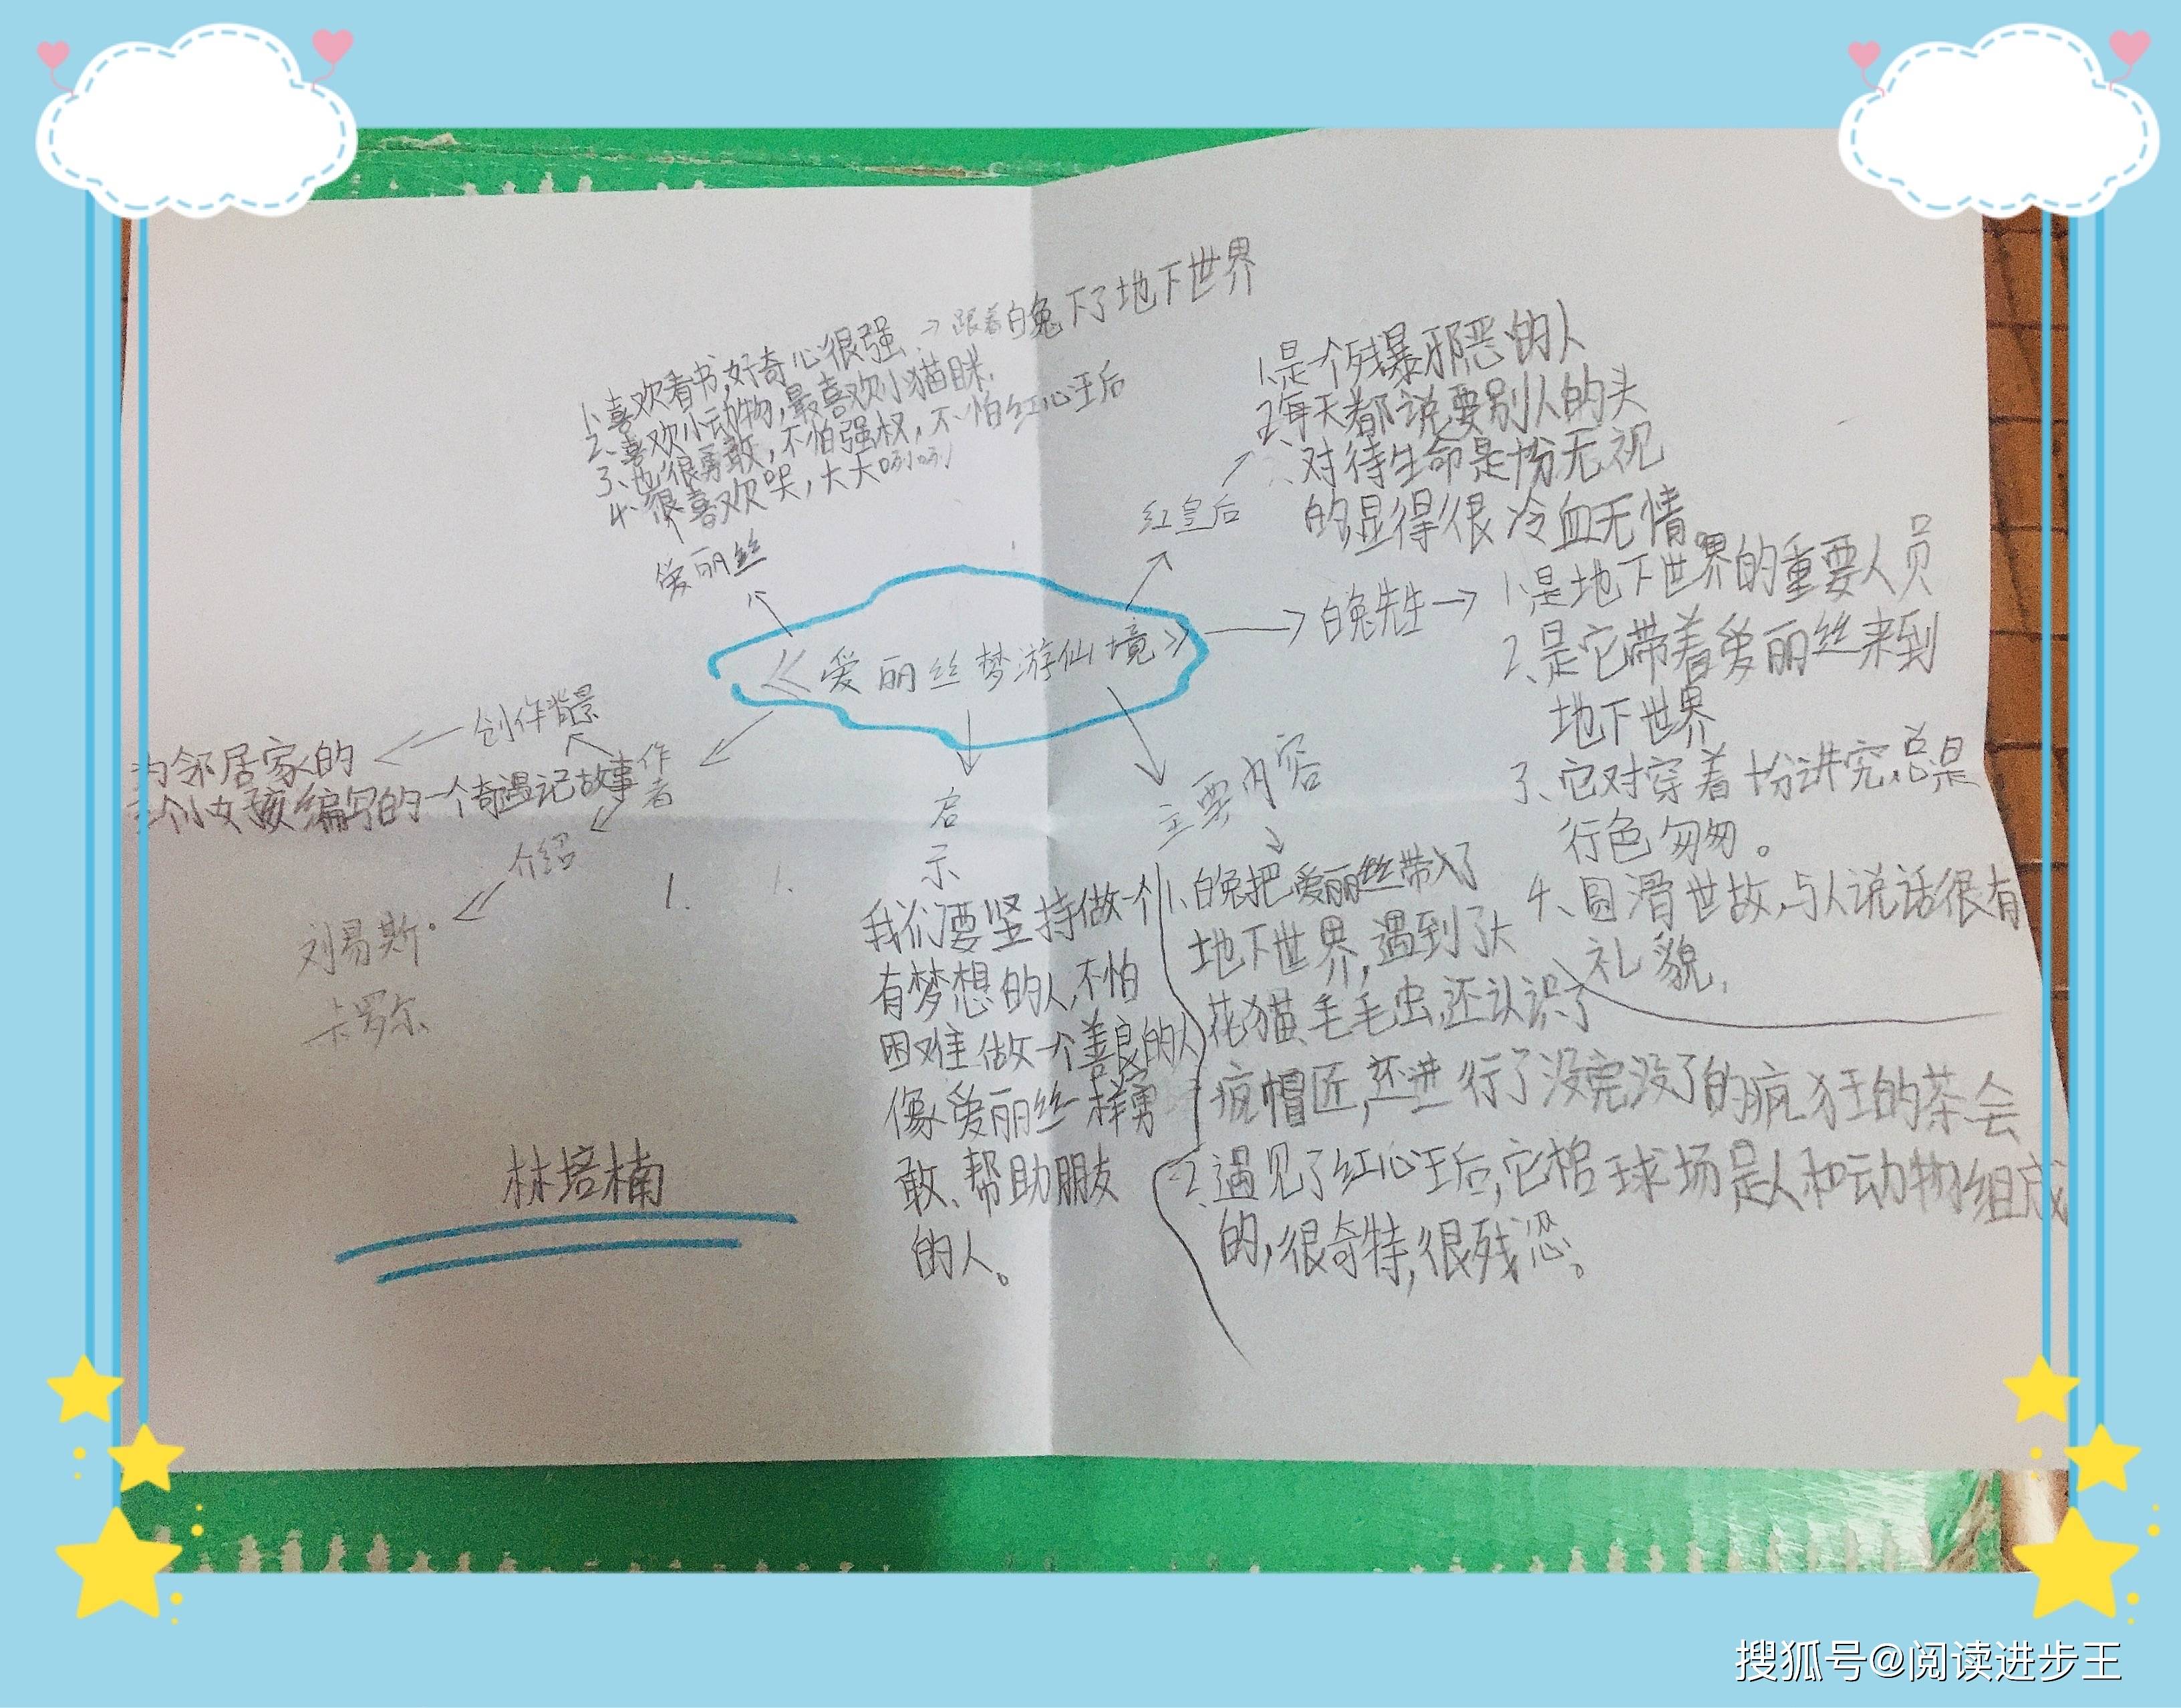 1、喜欢看书,好奇心很强→跟着白兔下了地下世界
2、喜欢小动物,最喜欢小猫咪,
3、也很勇敢,不怕强权,不怕红心王后
4、很喜欢哭,大大咧咧
爱丽丝
《爱丽丝梦游仙境》
红皇后
1、是个残暴邪恶的人
2、每天都说要别人的头
对待生命是十分无视
的显得很冷血无情。
白兔先生
1、是地下世界的重要人员
2、是它带着爱丽丝来到
地下世界
3、它对穿着十分讲究,总是
行色匆匆。
4、圆滑世故,与人说话很有
礼貌,
主要内容
1、白兔把爱丽丝带入了
地下世界,遇到了大
花猫、毛毛虫,还认识了
疯帽匠,还进行了没完没了的疯狂的茶会
2、遇见了红心王后,它棺球场是人和动物组成
的,很奇特,很残忍。
启示
我们要坚持做一个
有梦想的人,不怕
困难做一个善良的人
像爱丽丝一样勇
敢、帮助朋友
的人。
作者
创作背景
为邻居家的
三个小女孩编写的一个奇遇记故事
介绍
刘易斯·
卡罗尔
林培楠
搜狐号@阅读进步王